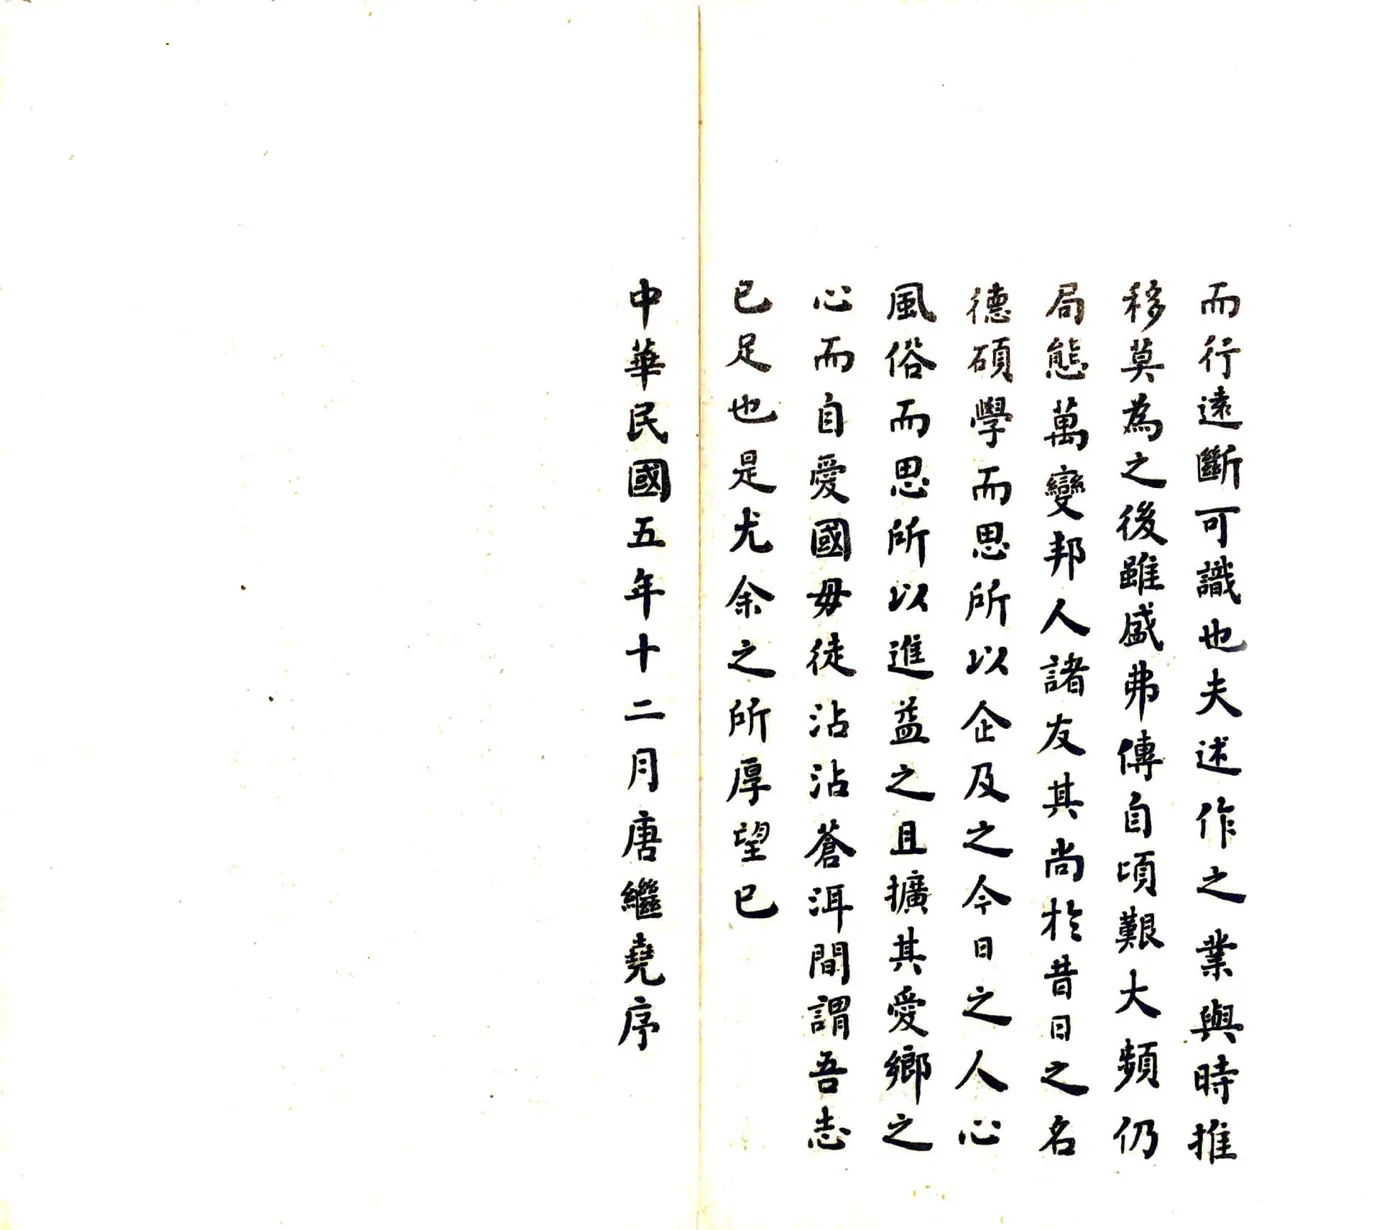 而行遠斷可識也夫述作之業與時推
移莫為之後雖盛弗傳自頃艱大頻仍
局態萬變邦人諸友其尚於昔日之名
德碩學而思所以企及之今日之人心
風俗而思所以進益之且擴其愛鄉之
心而自愛國毋徒沾沾蒼洱間謂吾志
已足也是尤余之所厚望已
中華民國五年十二月唐繼堯序